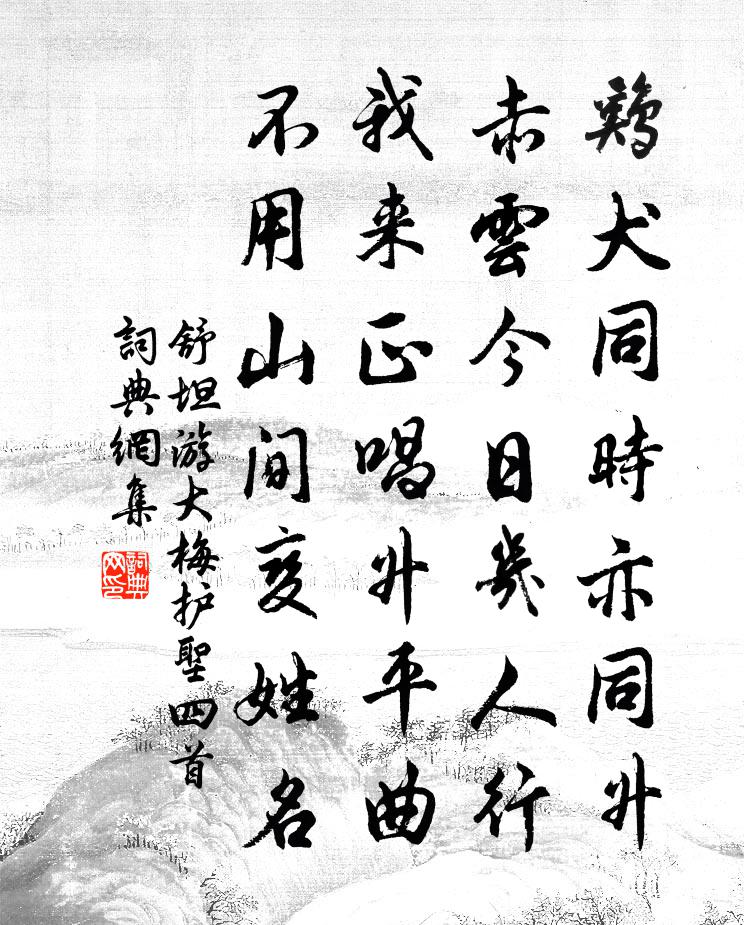 鷄犬同時亦同升
赤雲今日幾人行
我来正唱升平曲
不用山間变姓名
舒坦游大梅护聖四首
詞典網集
詞典